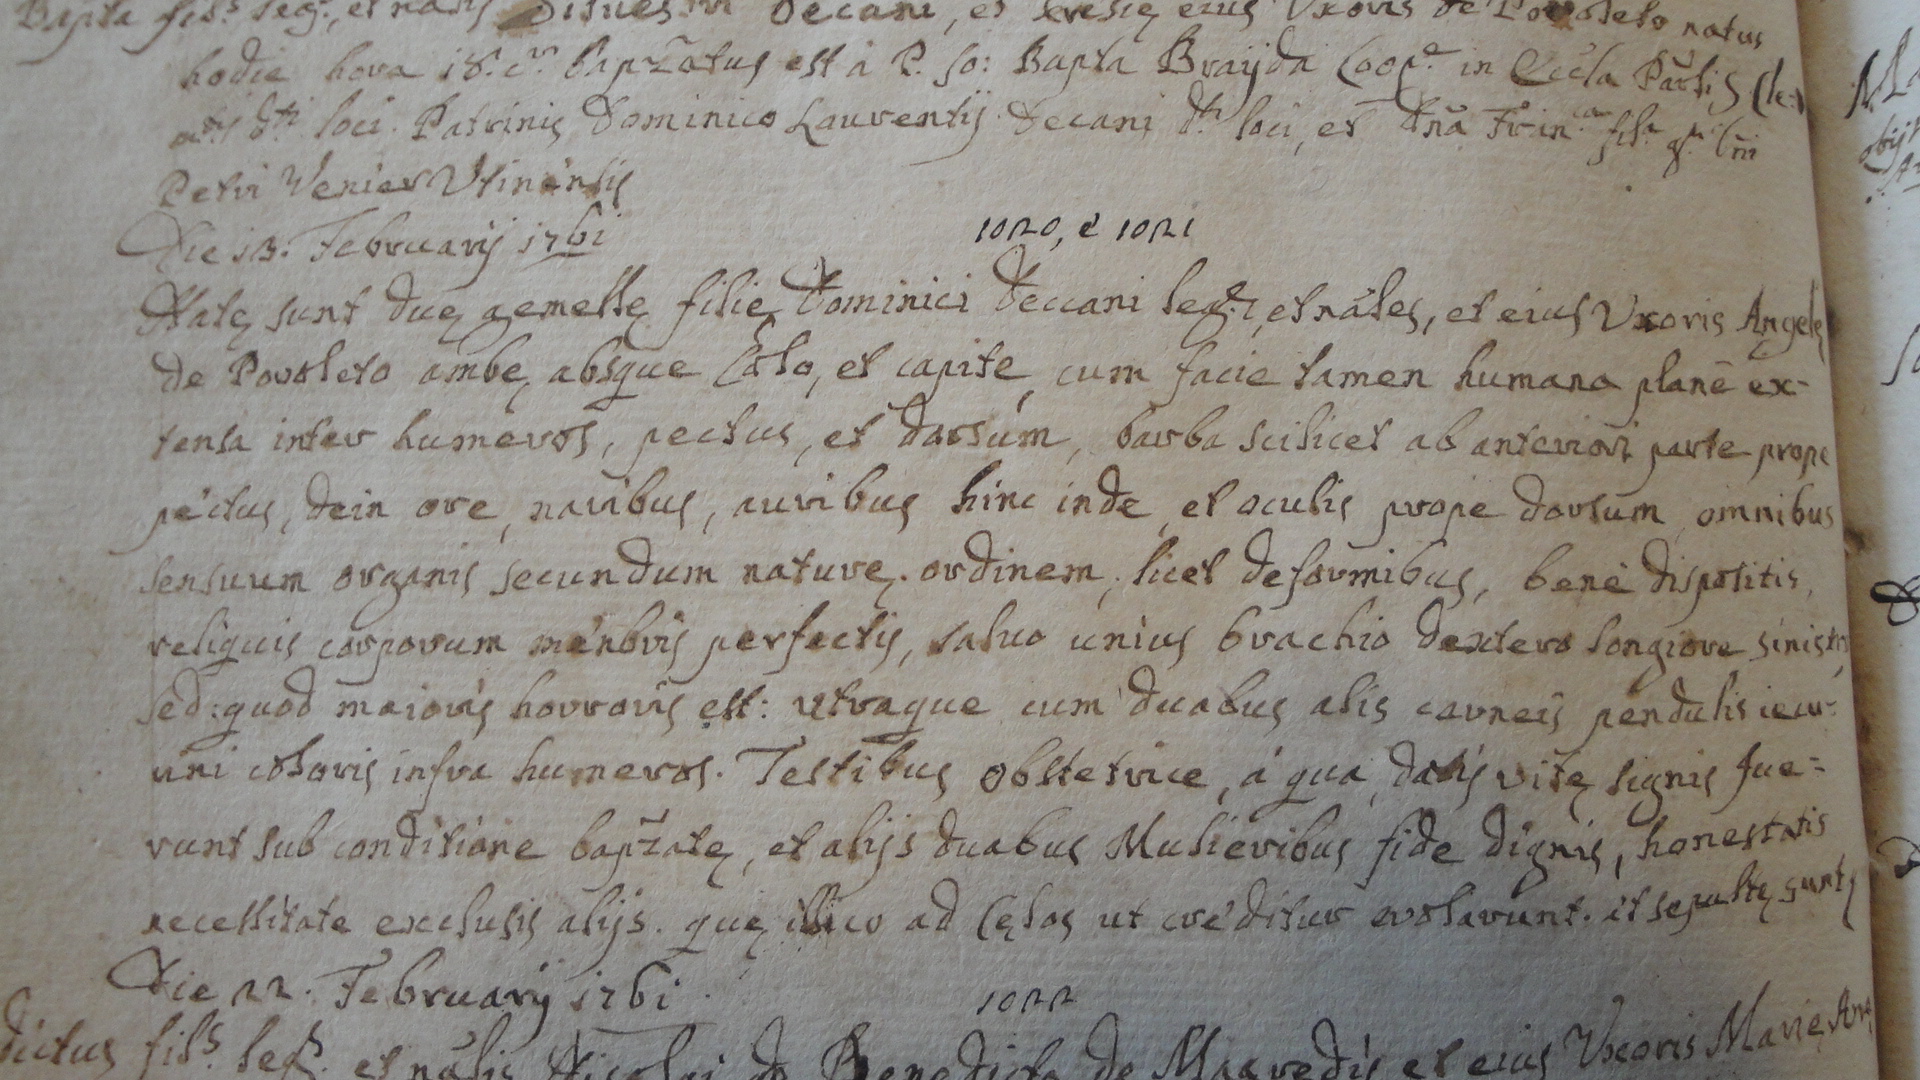 Bapta fil.s leg.s, et nalis Silvestri Decani, et eius Uxoris de Povoleto natus
hodie hora 18. c.a bapzatus est à P. Jo: Bapta Brayda Coop.e in Eccla Parlis
loci. Patrinis Dominico Laurentij Decani d.ti loci, et Dña Fran.ca fil.a q.m Dñi
Petri Venier Utinensis
Die 13. Februarij 1761 1020, e 1021
Natę sunt duę gemellę filię Dominici Deccani leg.ę, et náles, et eius Uxoris Angelę
de Povoleto ambę, absque Collo, et capite, cum facie tamen humana planè ex-
tensa inter humeros, pectus, et dorsum, barba scilicet ab anteriori parte prope
pectus, dein ore, naribus, auribus hinc inde, et oculis prope dorsum, omnibus
sensuum organis secundum naturę ordinem, licet deformibus, benè dispositis,
reliquis corporum membris perfectis, salvo unius brachio dextero longiore sinistro,
sed: quod maioris horroris est: utraque cum duabus alis carneis pendulis iecu-
rini coloris infra humeros. Testibus Obstetrice, á qua, datis vitę signis fue-
runt sub conditione bapzatę, et alijs duabus Mulieribus fide dignis, honestatis
necessitate exclusis alijs. quę illico ad Cęlos ut creditur evolarunt. et sepultę sunt
Die 22. Februarij 1761. 1022
dictus fil.s leg.s et nalis Nicolai de Benedictis de Magredis et eius Uxoris Marię Ang